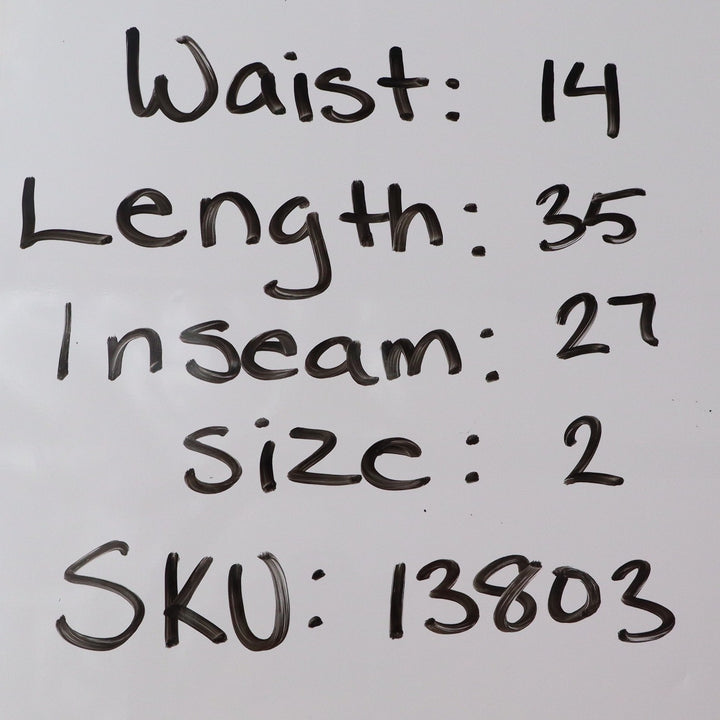 Waist: 14
Length: 35
Inseam: 27
Size: 2
SKU: 13803